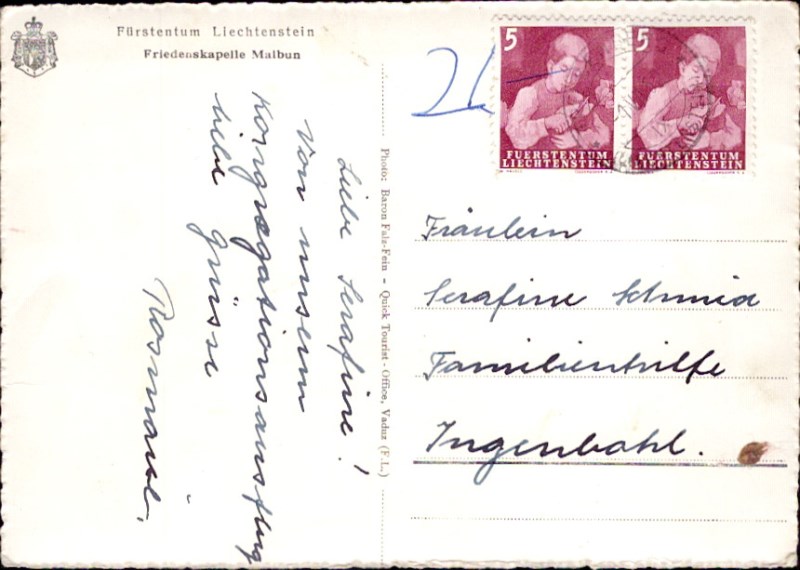 Fürstentum Liechtenstein
Friedenskapelle Malbun
Liebe Serafine!
Von unserm
Kongregationsausflug
liebe Grüsse
Rosmarie.
Photo: Baron Falz-Fein - Quick Tourist-Office, Vaduz (F.L.)
5
FUERSTENTUM
LIECHTENSTEIN
5
FUERSTENTUM
LIECHTENSTEIN
Fräulein
Serafine Schmid
Familienhilfe
Ingenbohl.